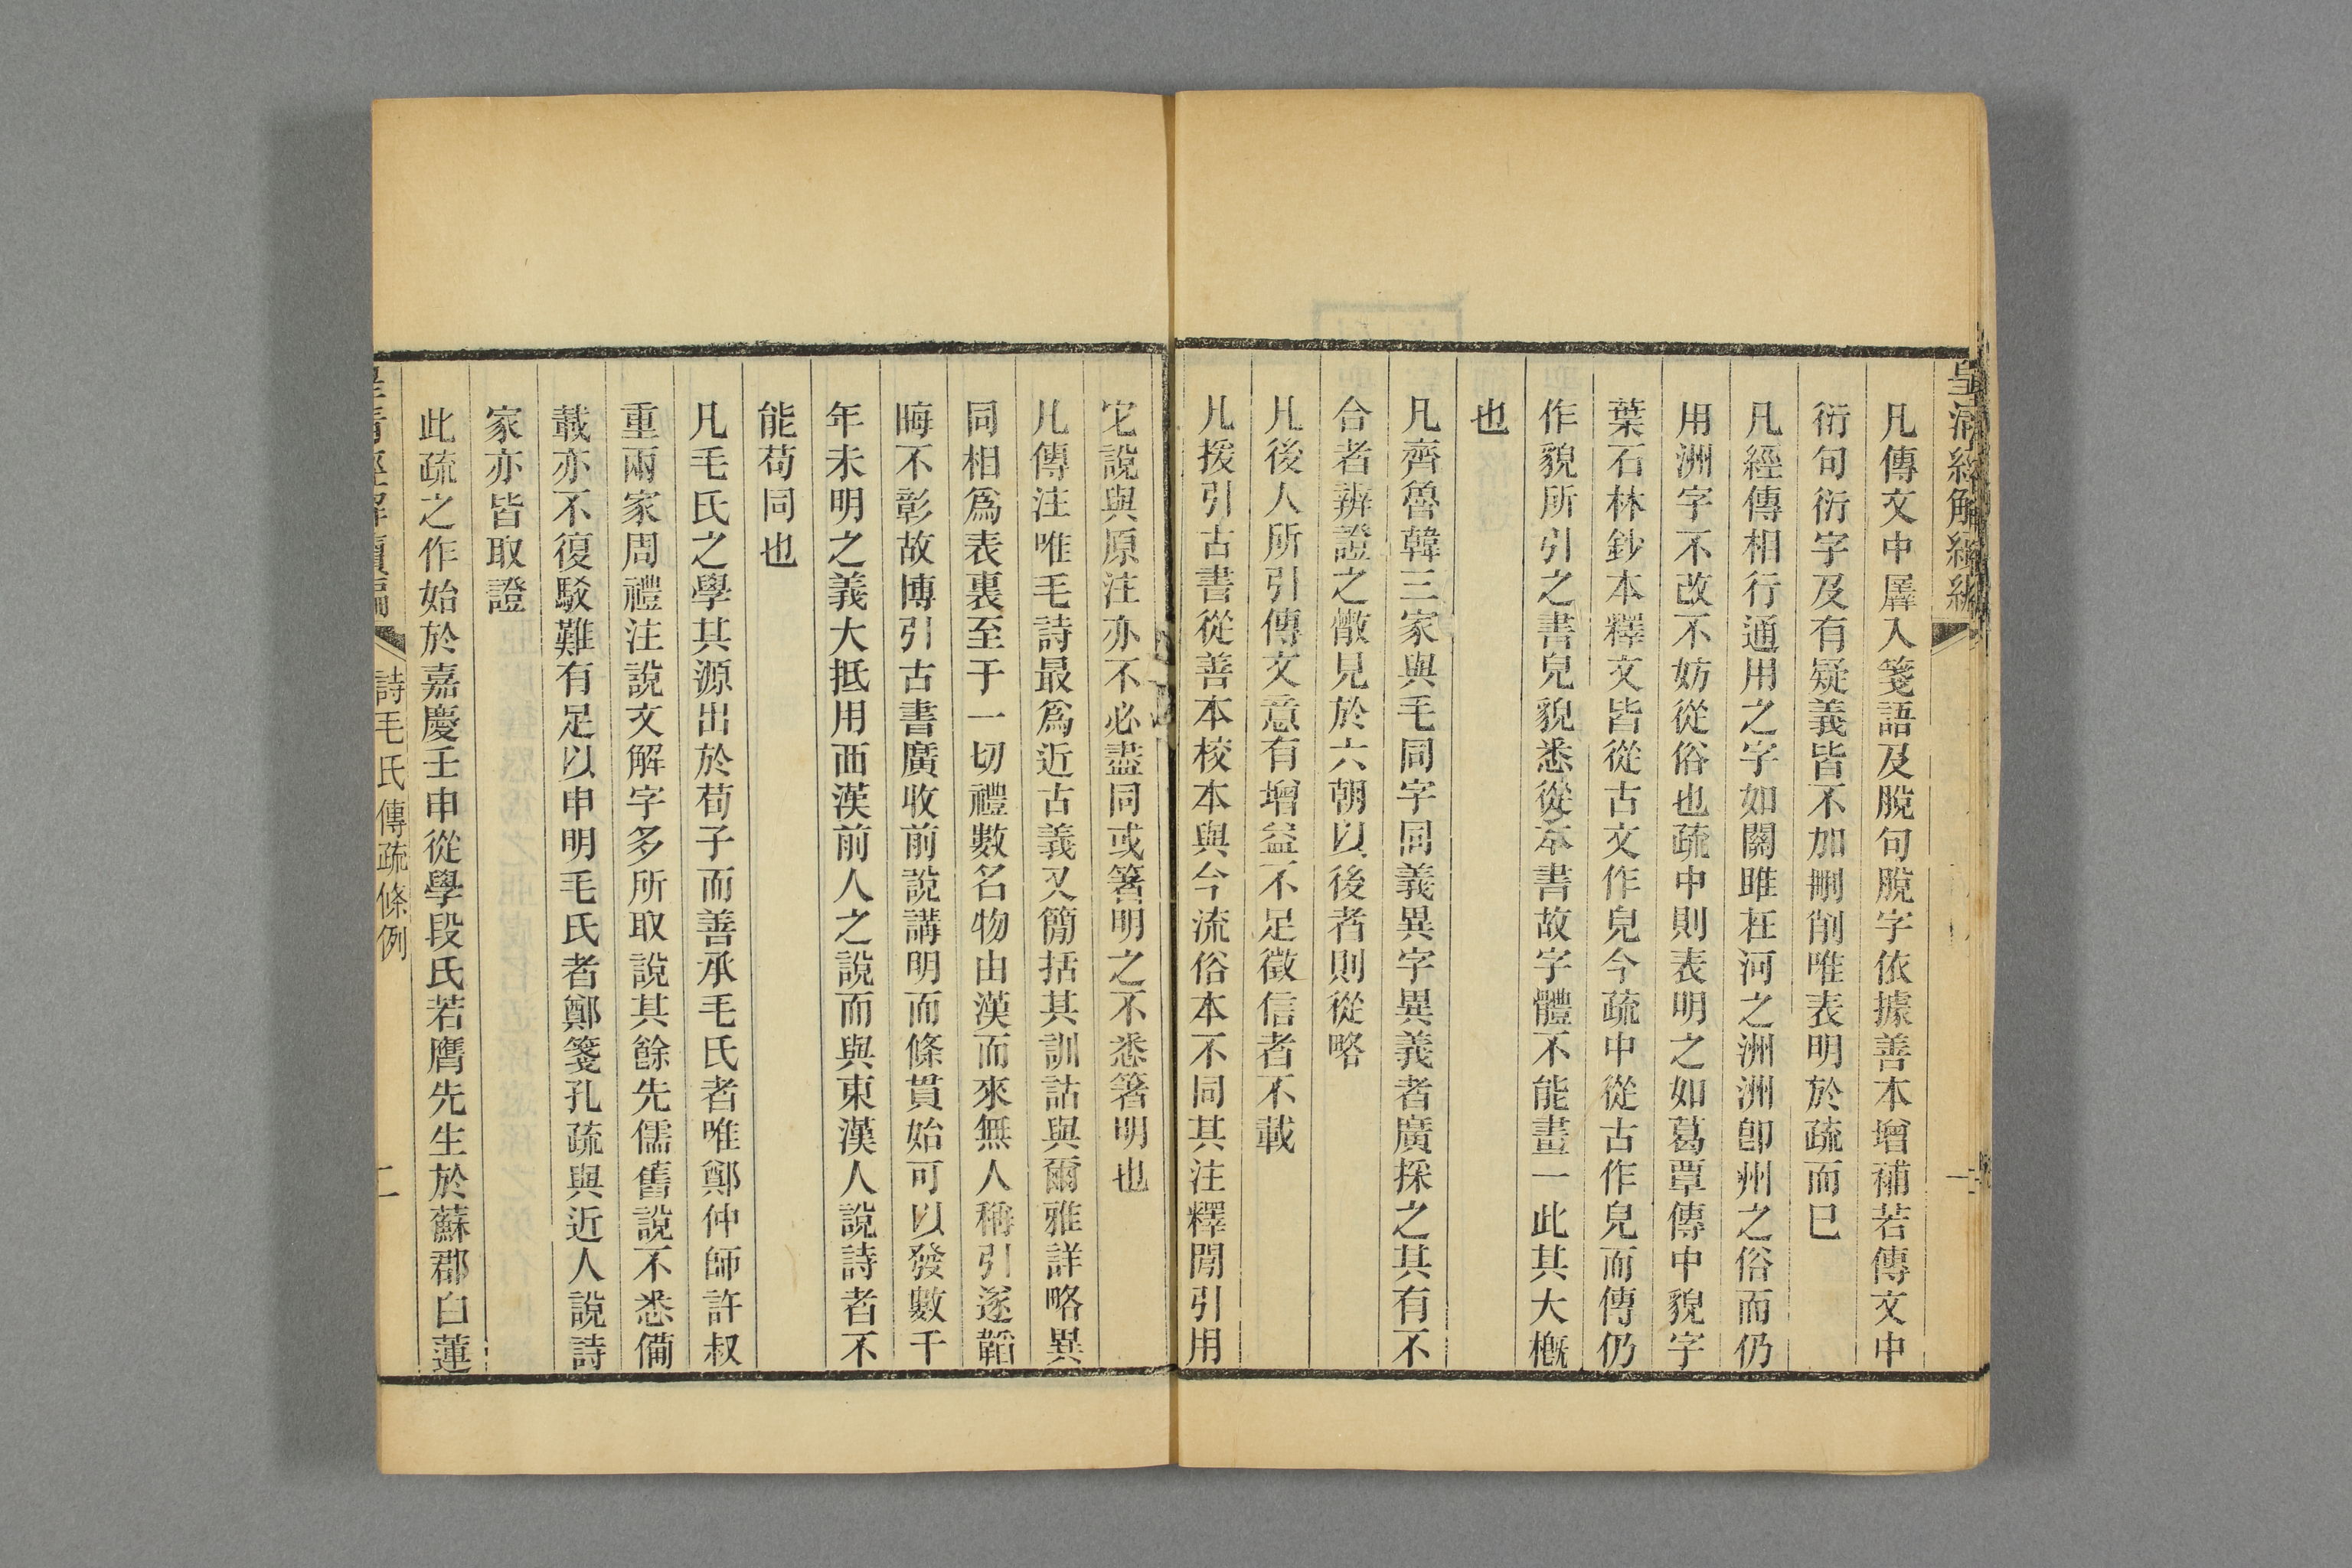 凡傳文中羼入箋語及脫句脫字依據善本增補若傳文中
衍句衍字及有疑義皆不加刪削唯表明於疏而已
凡經傳相行通用之字如關雎在河之洲洲卽州之俗而仍
用洲字不改不妨從俗也疏中則表明之如葛覃傳中貌字
葉石林鈔本釋文皆從古文作皃今疏中從古作皃而傳仍
作貌所引之書皃貌悉從本書故字體不能畫一此其大槪
也
凡齊魯韓三家與毛同字同義異字異義者廣採之其有不
合者辨證之檄見於六朝以後者則從略
凡後人所引傳文意有增益不足徵信者不載
凡援引古書從善本校本與今流俗本不同其注釋閒引用
它說與原注亦不必盡同或箸明之不悉箸明也
凡傳注唯毛詩最爲近古義又簡括其訓詁與爾雅詳略異
同相爲表裏至于一切禮數名物由漢而來無人稱引遂韜
晦不彰故博引古書廣收前說講明而條貫始可以發數千
年未明之義大抵用西漢前人之說而與東漢人說詩者不
能苟同也
凡毛氏之學其源出於荀子而善承毛氏者唯鄭仲師許叔
重兩家周禮注說文解字多所取說其餘先儒舊說不悉備
載亦不復駁難有足以申明毛氏者鄭箋孔疏與近人說詩
家亦皆取證
此疏之作始於嘉慶壬申從學段氏若膺先生於蘇郡白蓮
詩毛氏傳疏條例
二